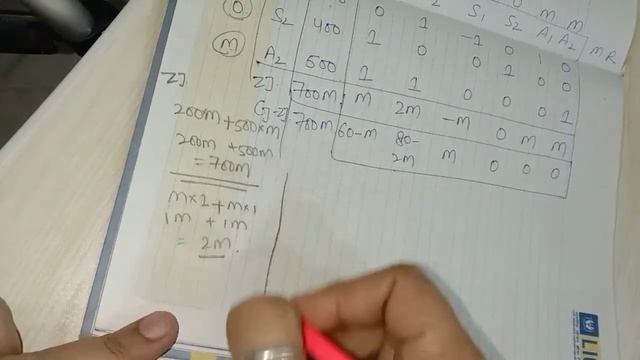 S₁ S₂ A₁ A₂ MR
0 0 1 -1 0 1 0
0 S₂ 400 1 0 0 1 0 0
M A₂ 500 1 1 0 0 0 1
Zj 700M M 2M -M 0 M M
Cj-Zj 700M 60-M 80-2M M 0 0 0
Zj
200m + 500xm
200m + 500m
= 700m
m×1 + m×1
1m + 1m
= 2m.